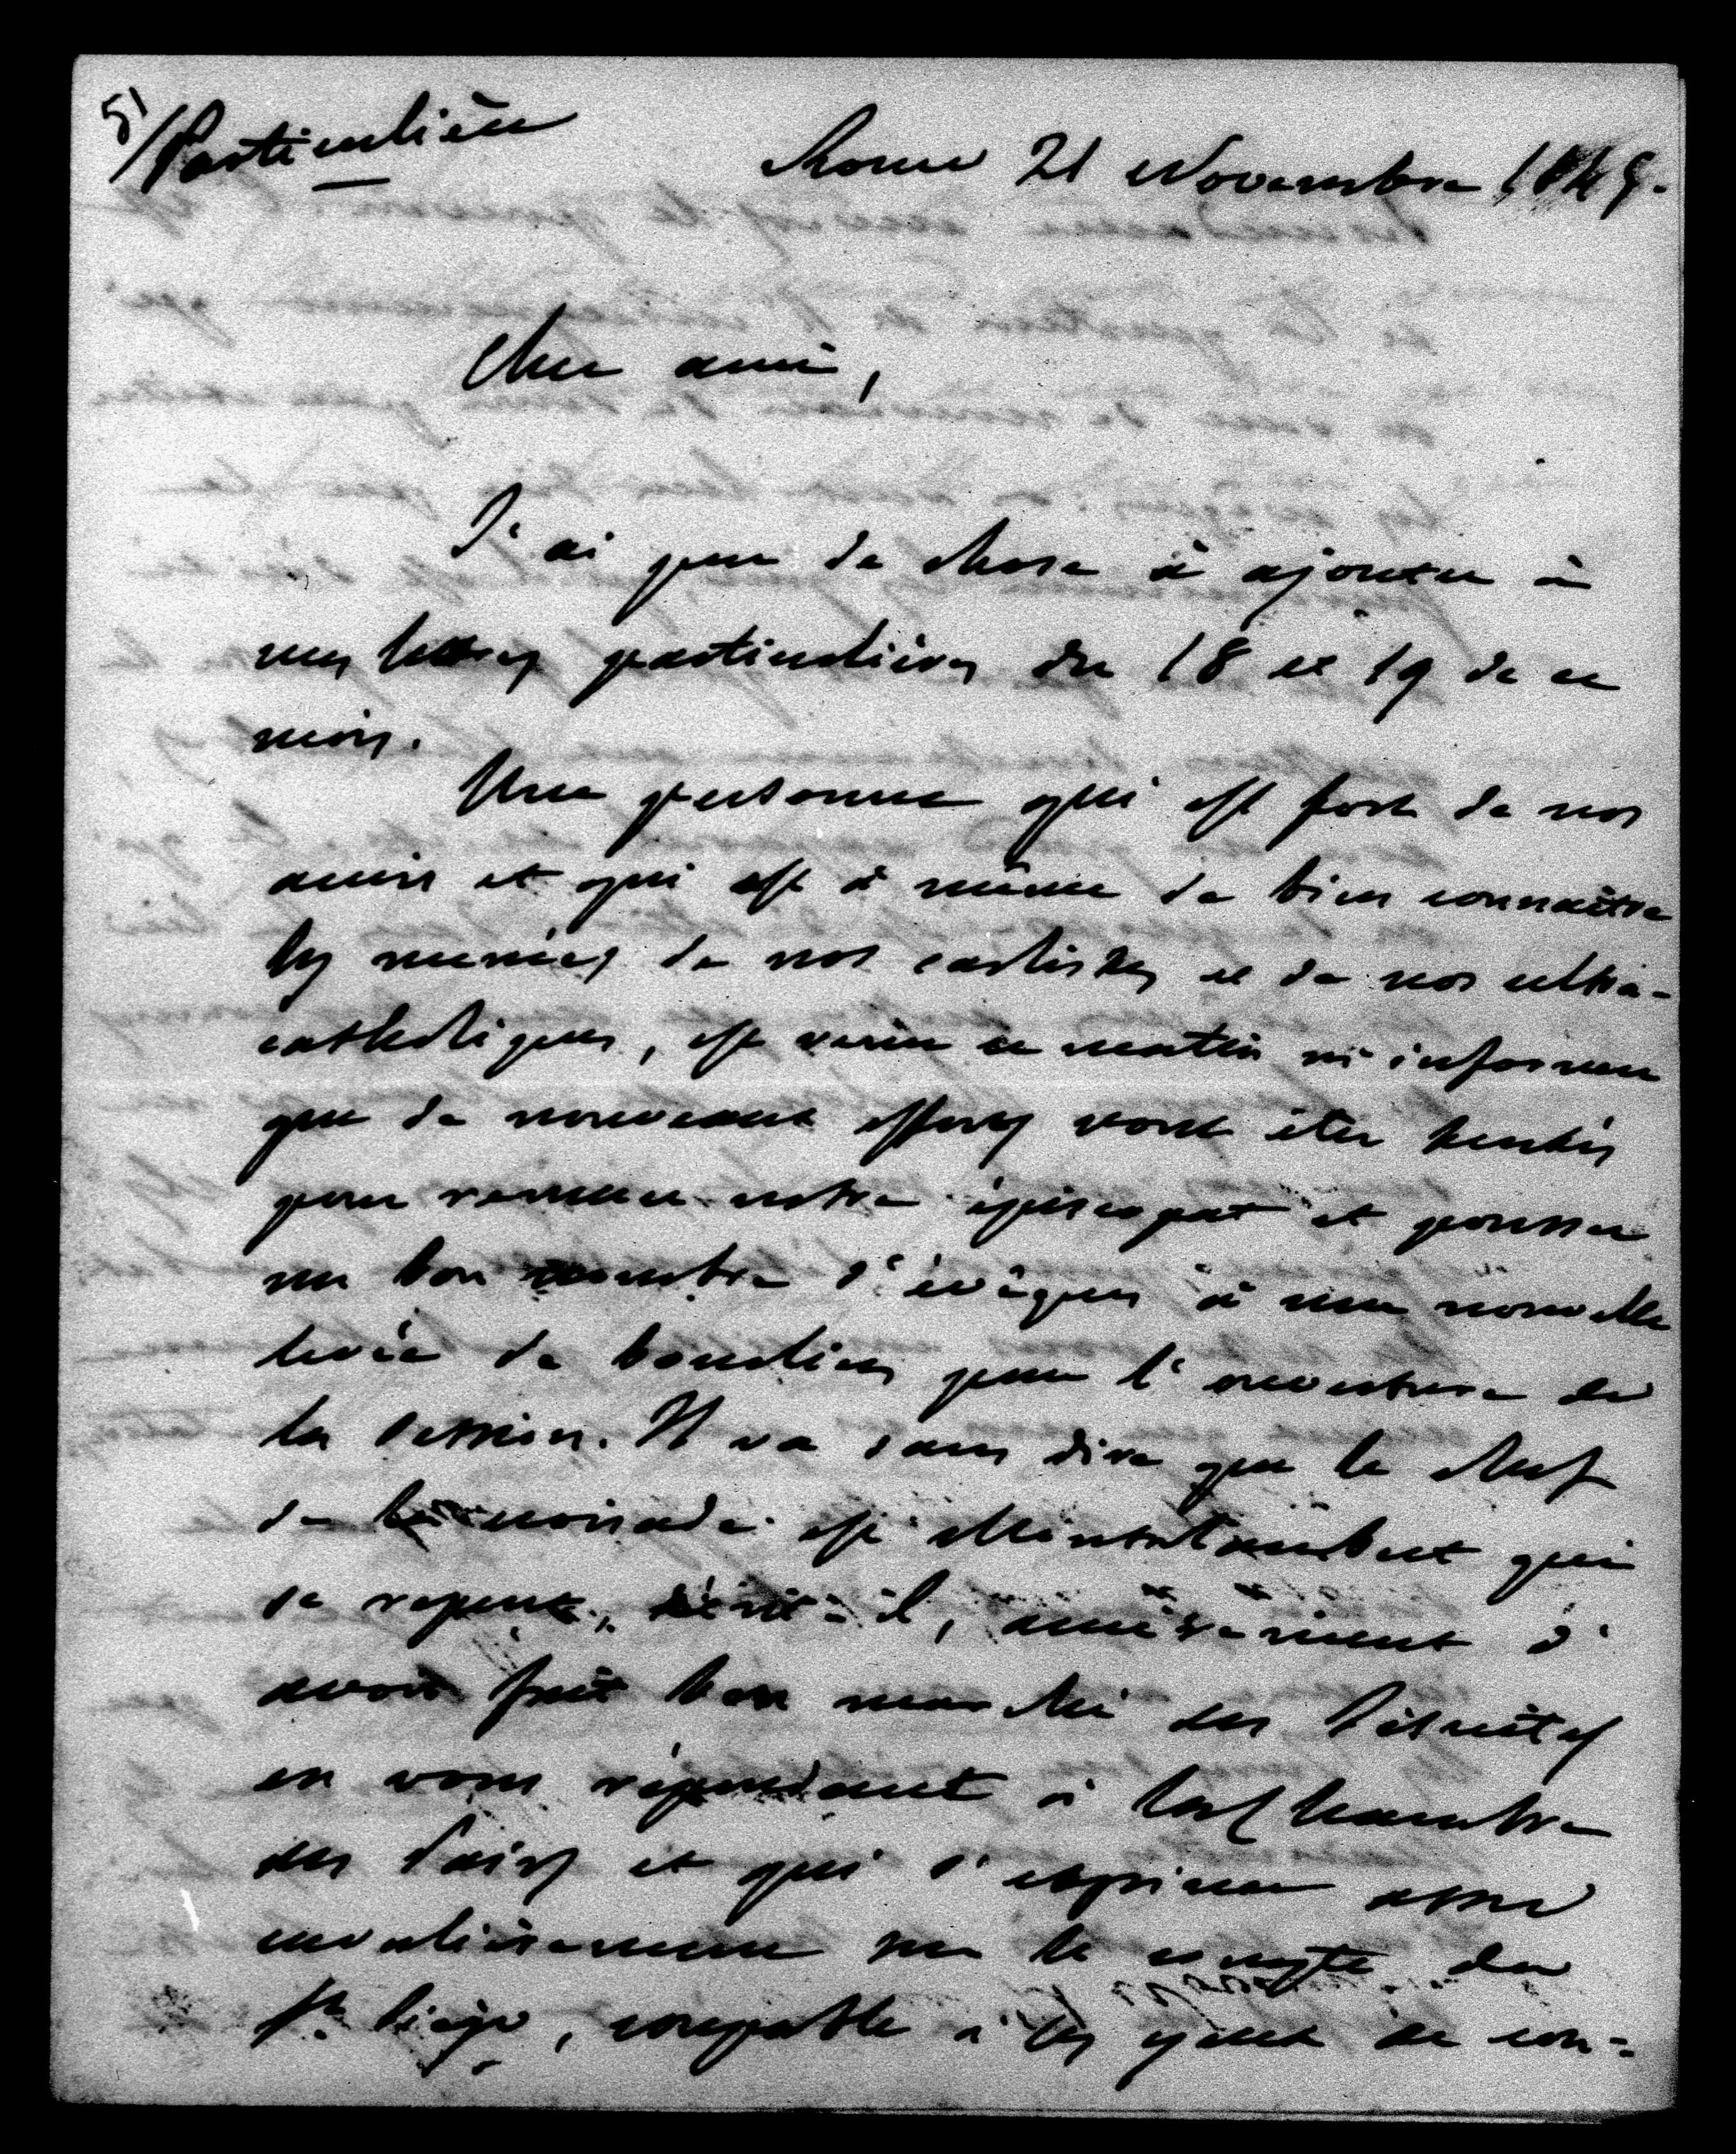 51
/Particulière
Rome 21 Novembre 1845.
Cher ami,
J'ai peu de chose à ajouter à
mes lettres particulières du 18 et 19 de ce
mois.
Une personne qui est fort de nos
amis et qui est à même de bien connaître
les menées de nos carlistes et de nos ultra-
catholiques, est venu ce matin m'informer
que de nouveaux efforts vont être tentés
pour remuer notre épiscopat et pousser
un bon nombre d'évêques à une nouvelle
levée de boucliers pour l'ouverture de
la session. Il va sans dire que le chef
de la croisade est Montalembert qui
se repent, écrit-il, amèrement d'
avoir fait bon marché des Jésuites
en vous répondant à la Chambre
des Pairs et qui s'exprime assez
cavalièrement sur le compte du
St. Siège, coupable à ses yeux de con-